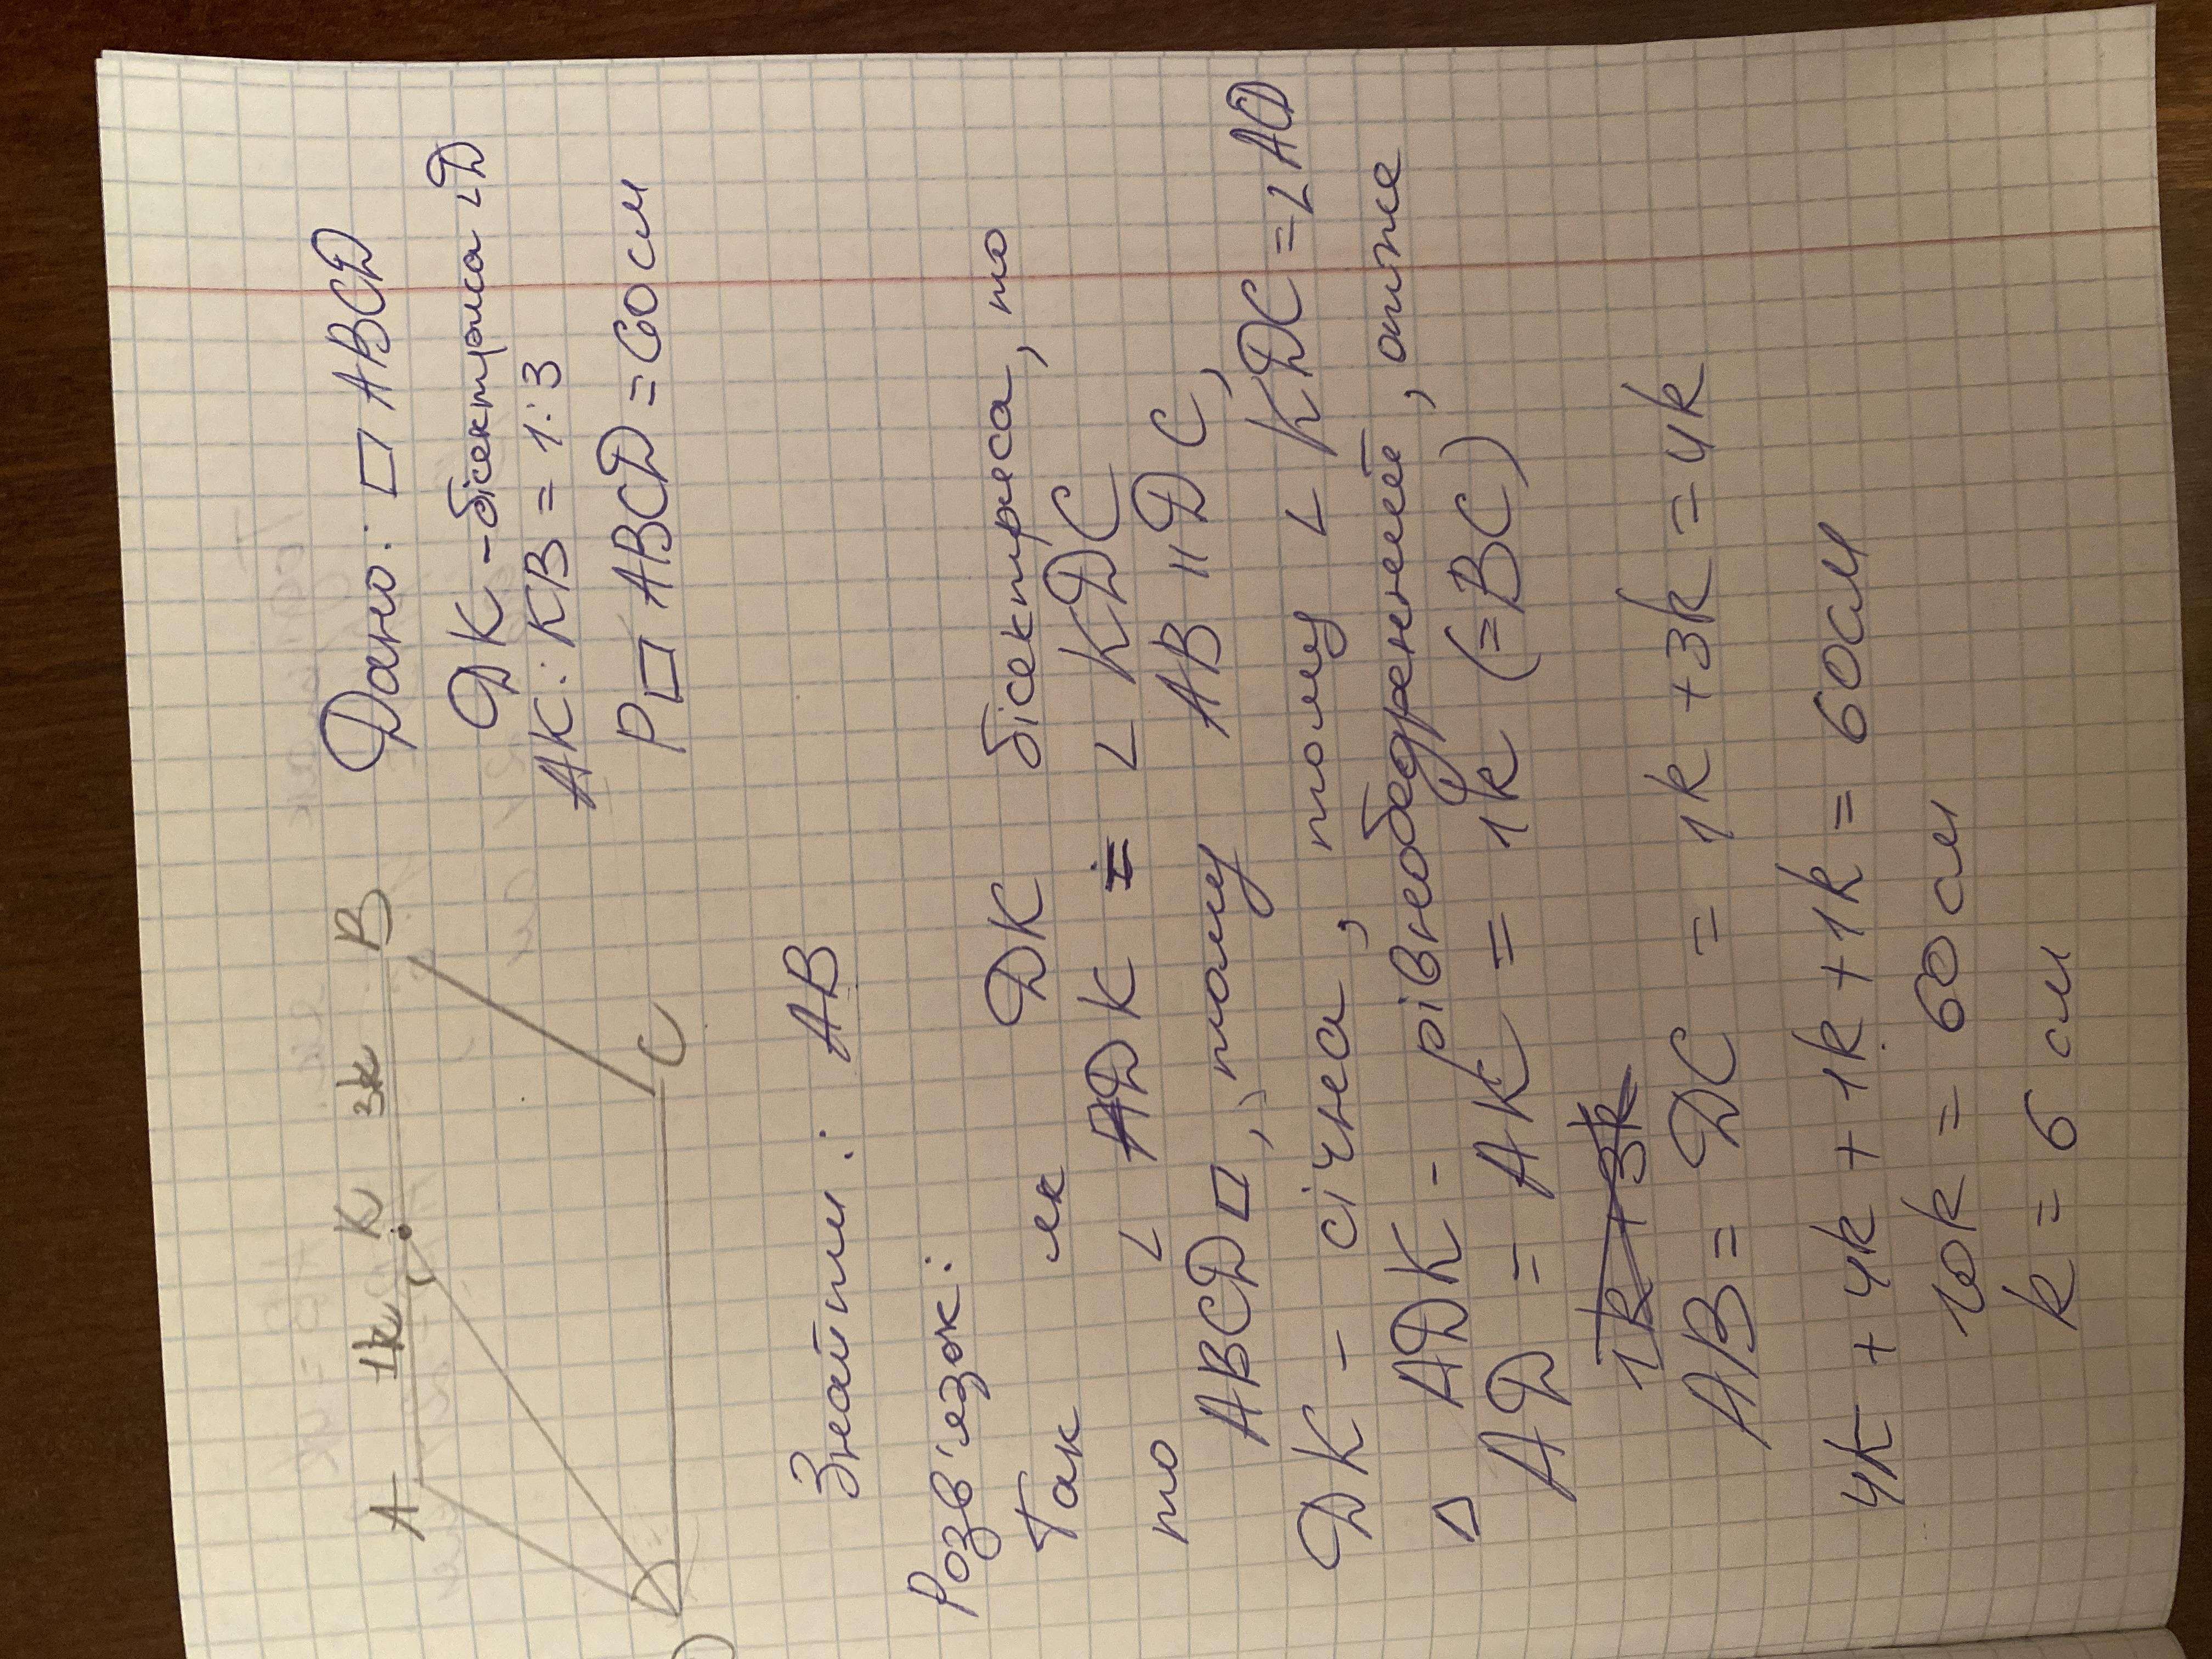 A 1k K 3k B
C
Дано: □ ABCД
ДК - бісектриса ∟Д
AK : KB = 1:3
P□ ABCД = 60 см
Знайти: AB
Розв'язок:
Так як ДК бісектриса, то
то ∟ AДК = ∟ КДС
ABCД □, тому AB || ДС,
ДК - січна, тому ∟ КДС = ∟ AD
△ AДК - рівнобедренний, отже
AД = AK = 1k (=BC)
1k + 3k
AB = ДС = 1k + 3k = 4k
4k + 4k + 1k + 1k = 60см
10k = 60 см
k = 6 см